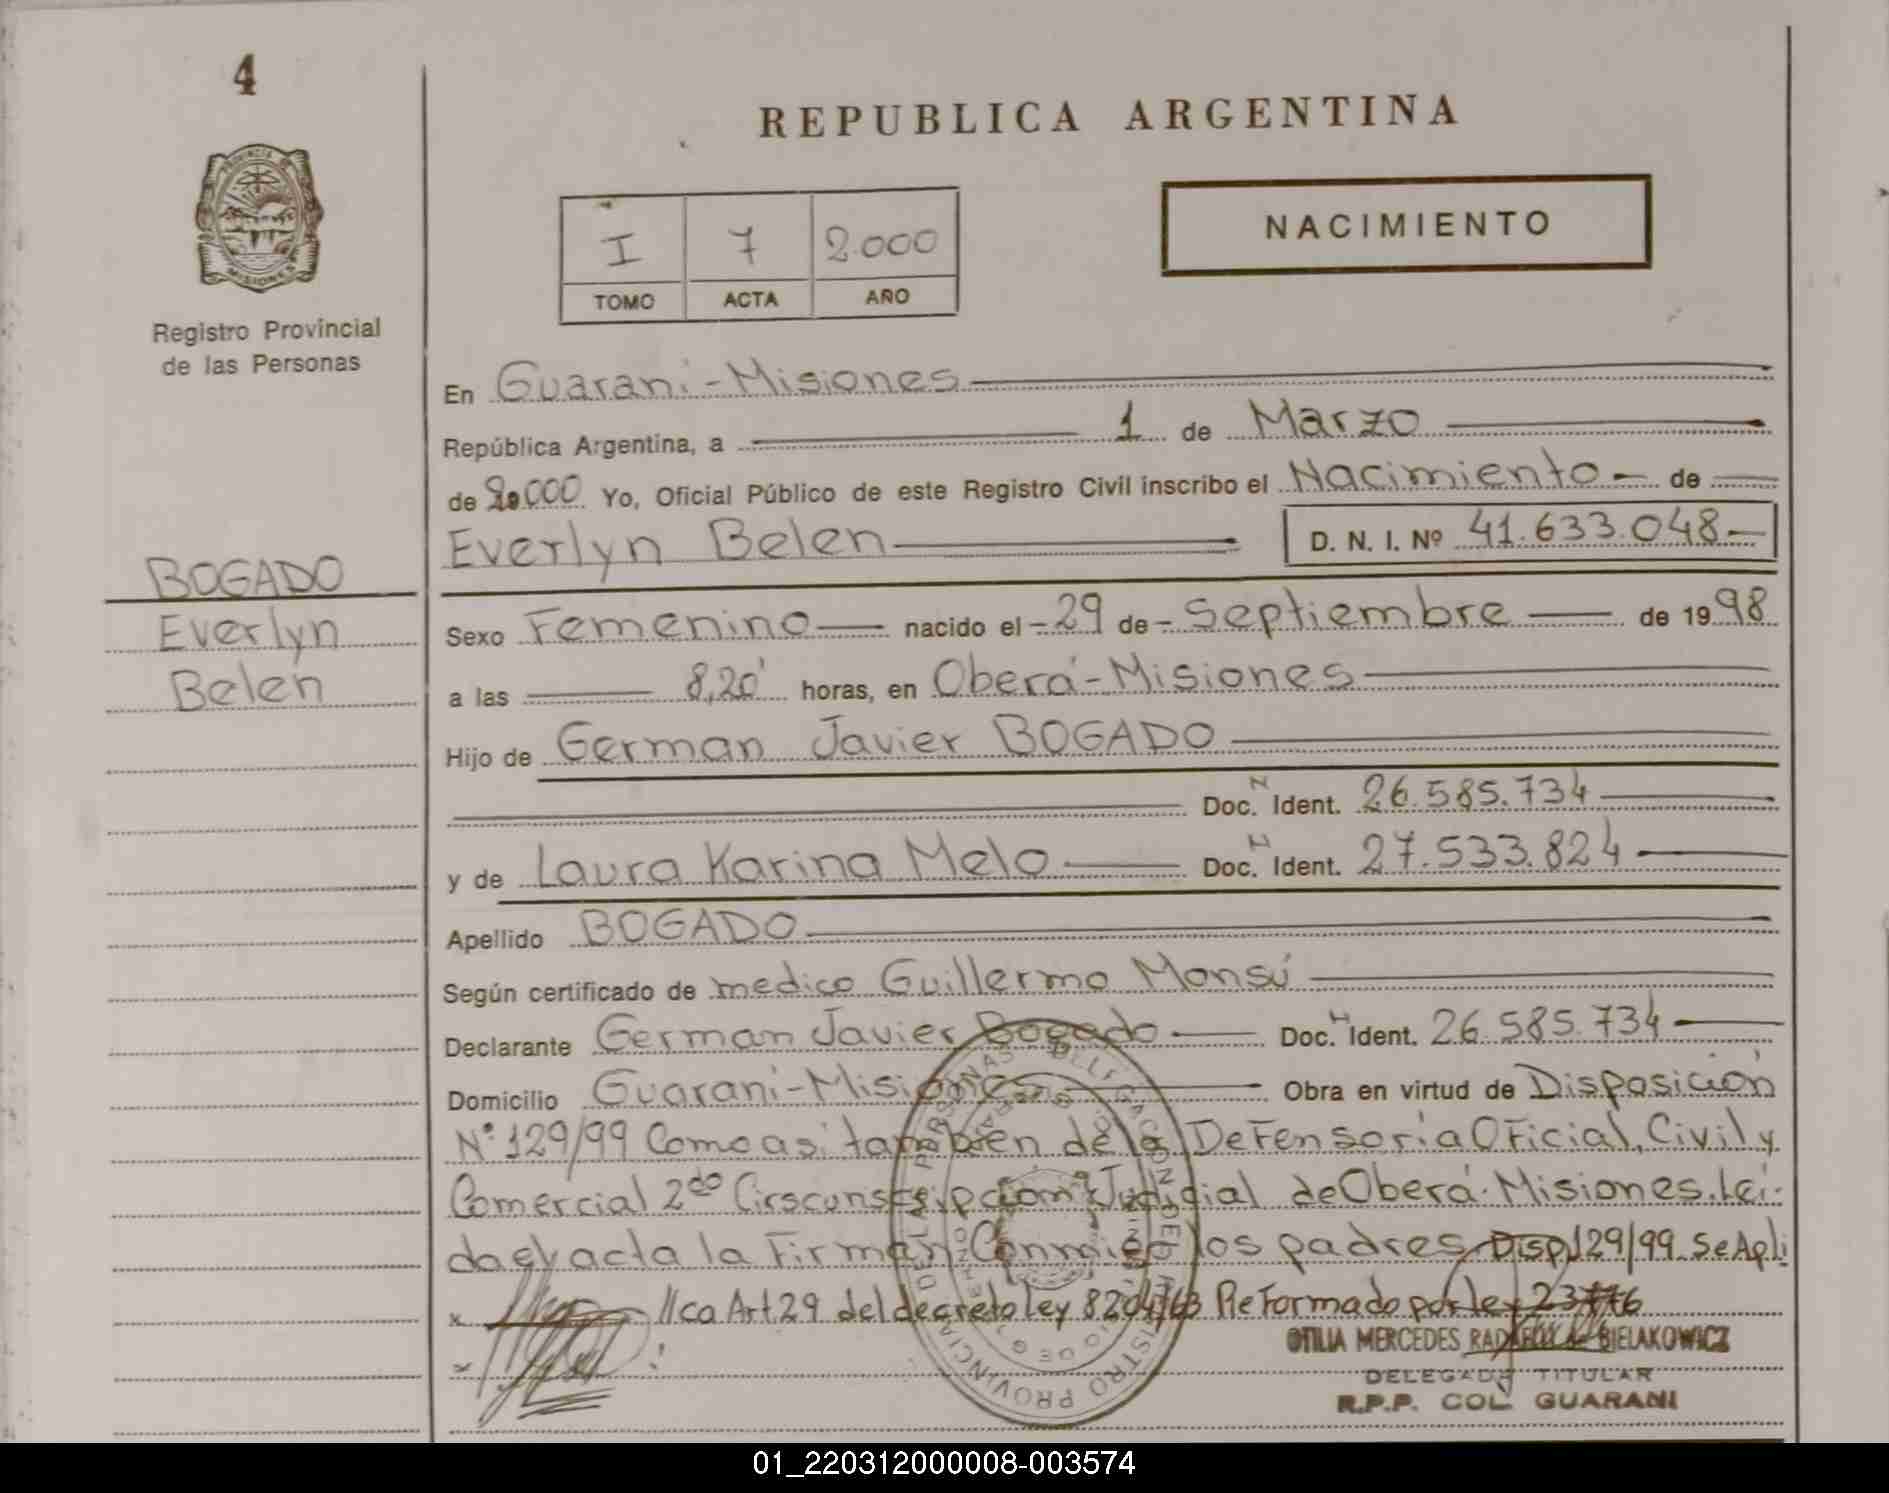 4
REPUBLICA ARGENTINA
PROVINCIA DE
MISIONES
Registro Provincial
de las Personas
I 7 2.000
TOMO ACTA AÑO
NACIMIENTO
En Guaraní-Misiones
República Argentina, a 1 de Marzo
de 2.000 Yo, Oficial Público de este Registro Civil inscribo el Nacimiento - de
Everlyn Belen D. N. I. Nº 41.633.048.-
BOGADO
Everlyn
Belen
Sexo Femenino nacido el - 29 de - Septiembre de 1998
a las 8,20' horas, en Oberá-Misiones
Hijo de German Javier BOGADO
Doc. N Ident. 26.585.734
y de Laura Karina Melo Doc. N Ident. 27.533.824
Apellido BOGADO
Según certificado de medico Guillermo Monsú
Declarante German Javier Bogado Doc. N Ident. 26.585.734
Domicilio Guaraní-Misiones Obra en virtud de Disposición
Nº 129/99 Como asi tambien de la Defensoría Oficial, Civil y
Comercial 2do Circunscripcion Judicial de Oberá. Misiones. Lei-
da el acta la Firman Conmigo los padres Disp 129/99 Se Apli
x //ca Art. 29 del decreto ley 8204/63 Reformado por ley
x
OTILIA MERCEDES BIELAKOWICZ
DELEGADA TITULAR
R.P.P. COL. GUARANI
01_220312000008-003574